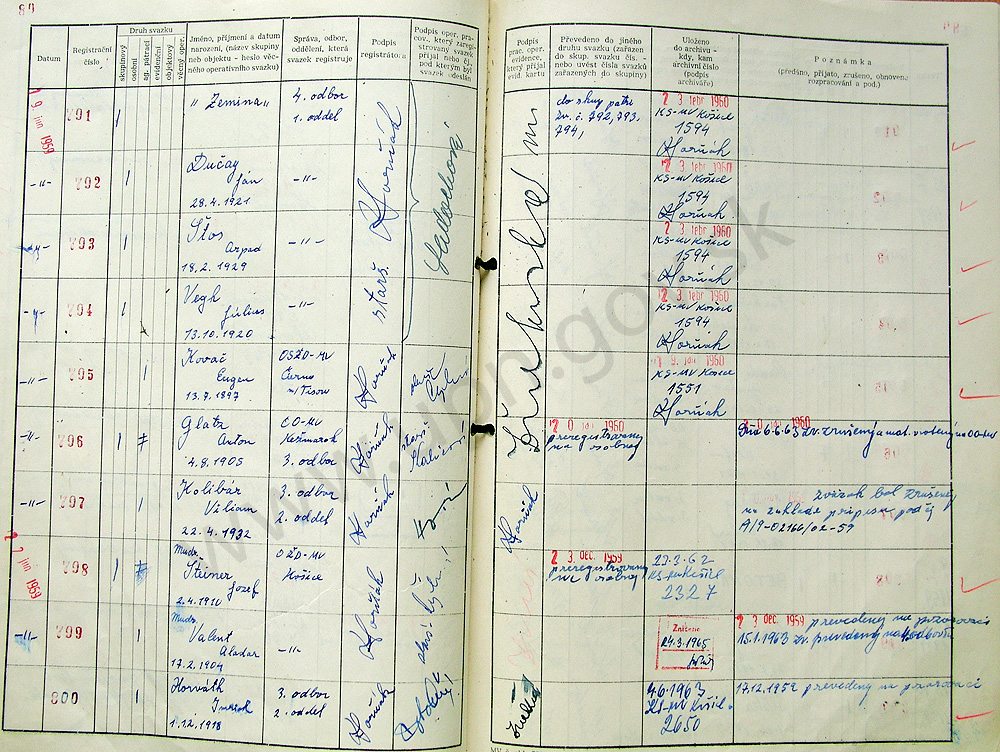 89
Datum
Registrační číslo
Druh svazku
skupinový
osobní
sg. pátrací
evidenční
objektový
věcný oper.
Jméno, příjmení a datum narození, (název skupiny neb objektu - heslo věcného operativního svazku)
Správa, odbor, oddělení, která svazek registruje
Podpis registrátora:
Podpis oper. pracov., který zaregistrovaný svazek přijal nebo čj. pod kterým byl svazek odeslán
Podpis prac. oper. evidence, který přijal evid. kartu
Převedeno do jiného druhu svazku (zařazen do skup. svazku čís. - nebo uvést čísla svazků zařazených do skupiny)
Uloženo do archivu - kdy, kam archivní číslo (podpis archiváře)
Poznámka
(předáno, přijato, zrušeno, obnoveno rozpracování a pod.)
19 jun 1959
791
I
„Zemina"
4. odbor
1. oddel
do skup patri
zv. č. 792, 793,
794,
2 3. febr 1960
KS-MV Košice
1594
Horňák
-"-
792
I
Dučay
Ján
28.4.1921
-"-
2 3. febr 1960
KS-MV Košice
1594
Horňák
793
I
Štos
Arpad
18.2.1929
-"-
2 3. febr 1960
KS-MV Košice
1594
Horňák
794
I
Vegh
Július
13.10.1920
-"-
2 3. febr 1960
KS-MV Košice
1594
Horňák
-"-
795
I
Kovač
Eugen
13.7.1897
OSŽD-MV
Horňák
1960
KS-MV Košice
1551
Horňák
-"-
796
I
Glatz
Anton
4.8.1905
OO-MV
Kežmarok
3. odbor
Horňák
1960
preregistrovaný
na osobný
1960
Dňa 6.6.63 zv. zrušený a mat.
-"-
797
I
Kolibár
Viliam
22.4.1932
3. odbor
2. oddel
Horňák
Horňák
zväzok bol zrušený
na základe prípisu
A/9-02166/02-59
22 jun 1959
798
I
Mudr.
Steiner
Jozef
2.4.1910
OŽD-MV
Košice
Horňák
2 3. DEC. 1959
preregistrovaný
na osobný
2327
-"-
799
I
Mudr.
Valent
Aladar
17.2.1904
-"-
Horňák
Zničené
24.3.1965
2 3 DEC 1959 prevedený na pozorovací
15.1.1963 zv. prevedený na
800
I
Horváth
Imrich
1.12.1918
3. odbor
2. oddel
Horňák
4.6.1963
KS-MV Košice
2650
17.12.1959 prevedený na pozorovací
www.upn.gov.sk